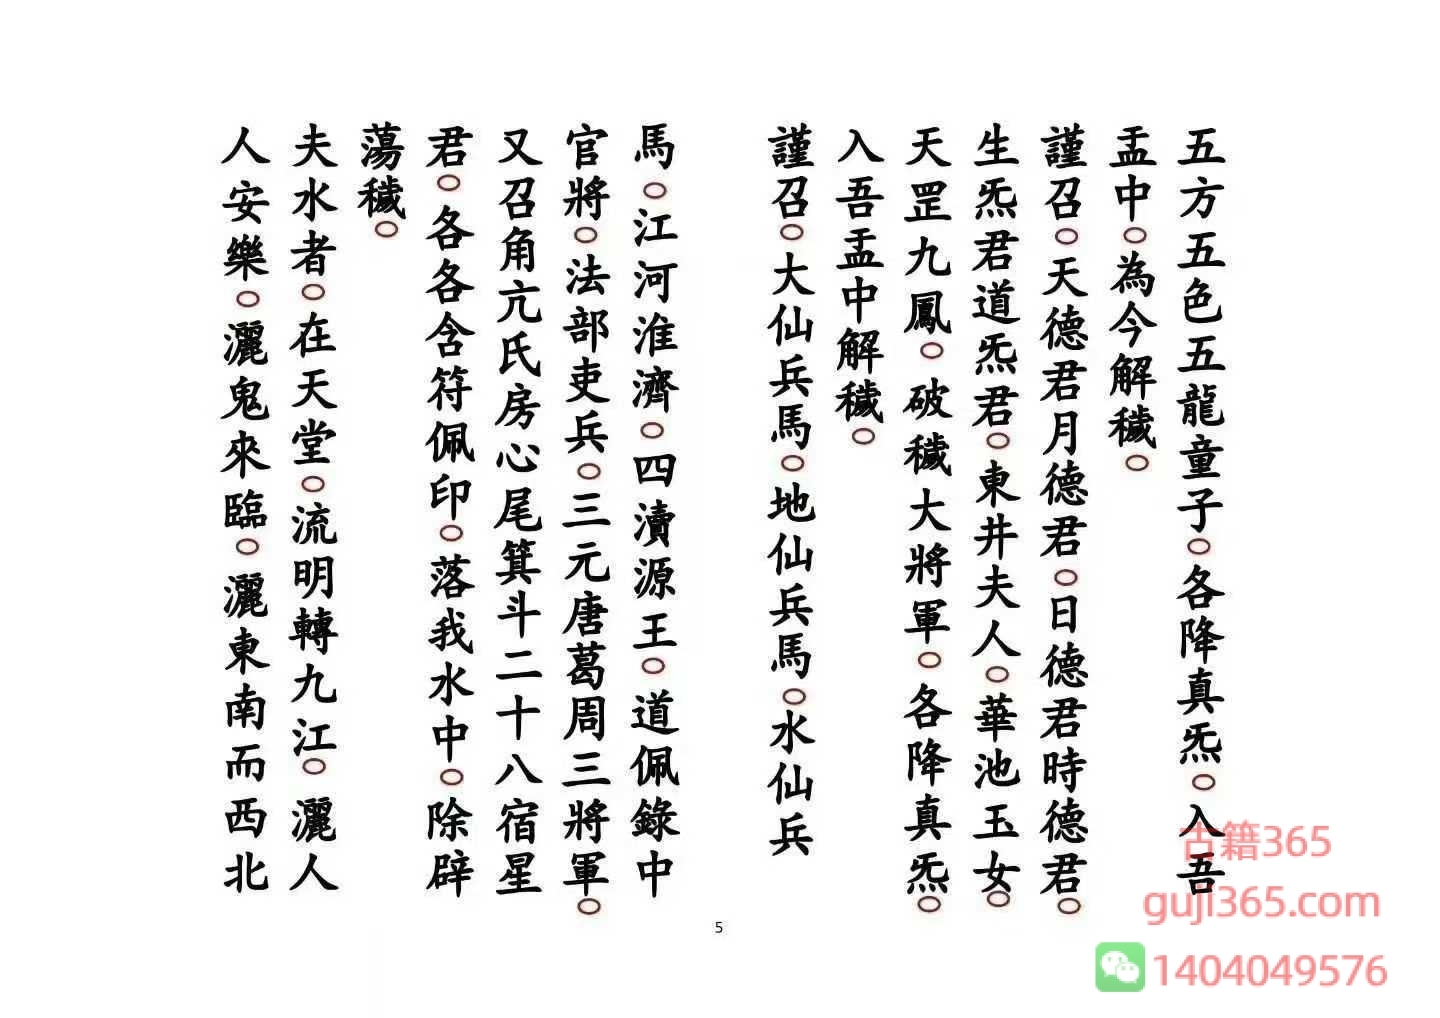 五方五色五龍童子○各降真炁○入吾
盂中○為今解穢○
謹召○天德君月德君○日德君時德君○
生炁君道炁君○東井夫人○華池玉女○
天罡九鳳○破穢大將軍○各降真炁○
入吾盂中解穢○
謹召○大仙兵馬○地仙兵馬○水仙兵
馬○江河淮濟○四瀆源王○道佩籙中
官將○法部吏兵○三元唐葛周三將軍○
又召角亢氐房心尾箕斗二十八宿星
君○各各含符佩印○落我水中○除辟
蕩穢○
夫水者○在天堂○流明轉九江○灑人
人安樂○灑鬼來臨○灑東南而西北
5
古籍365
guji365.com
1404049576